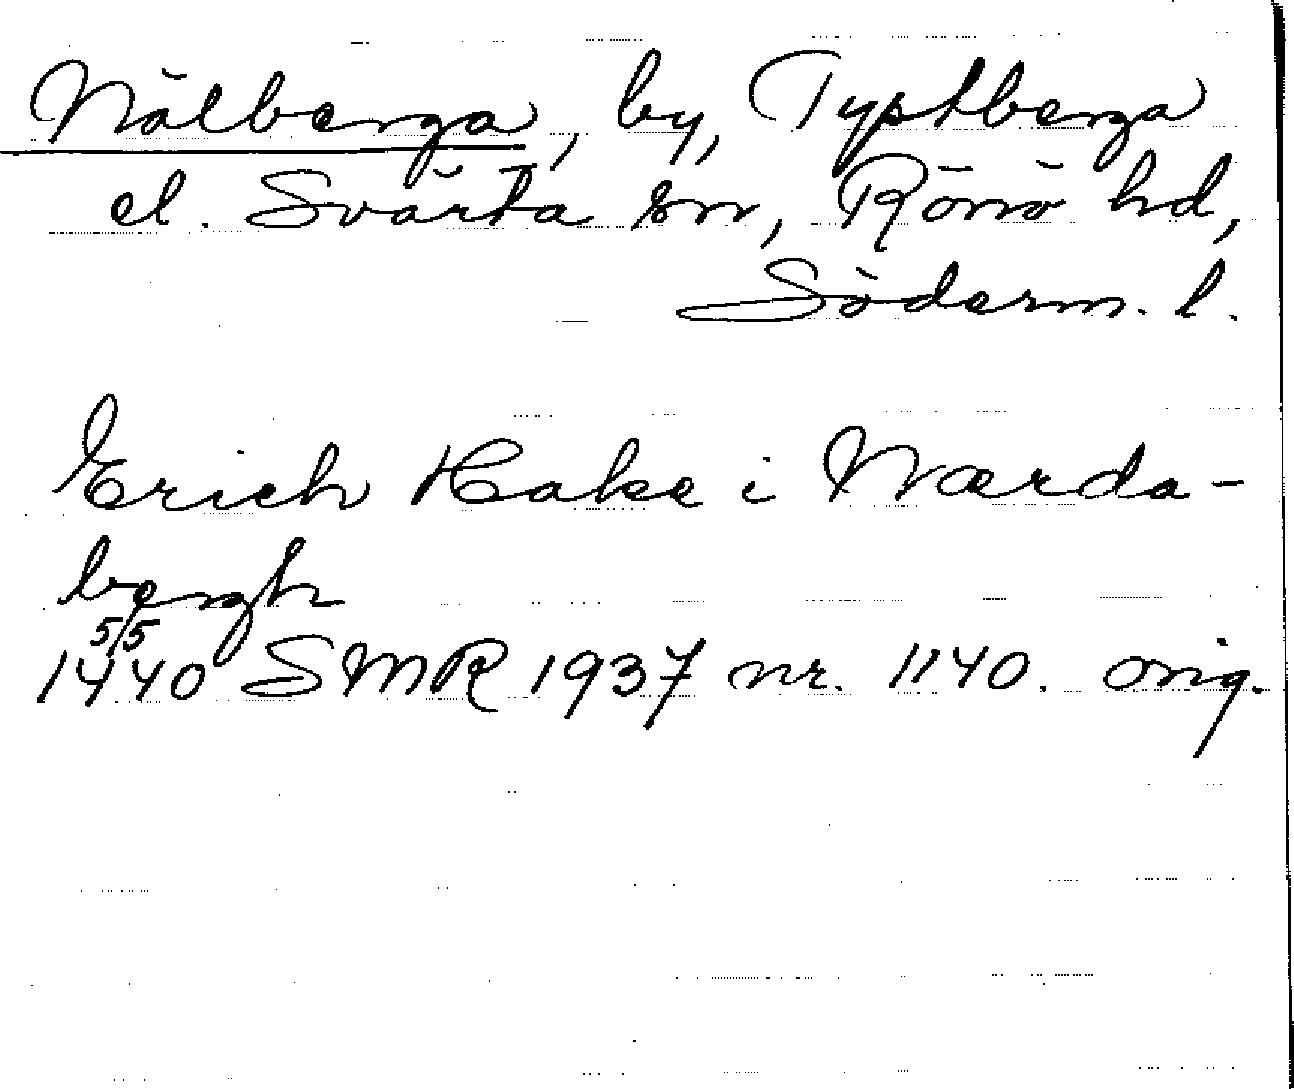 Nälberga, by, Tystberga
el. Svärta sn, Rönö hd,
Söderm. l.
Erich Hake i Nærda-
bergh
5/5
1440 SMR 1937 nr. 1140. orig.